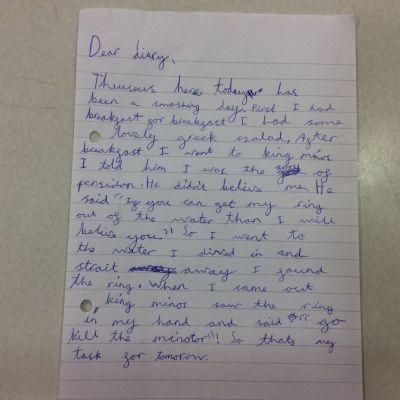 Dear diary,
Thueseus here, today has
been a smashing day. First I had
breakfast for breakfast I had some
lovely greek salad. After
breakfast I went to king minos
I told him I was the of
persidon. He didn't belive me. He
said "If you can get my ring
out of the water than I will
belive you"! So I went to
the water I dived in and
strait away I found
the ring. When I came out
king minos saw the ring
in my hand and said "go
kill the minotor"! So thats my
task for tomorrow.